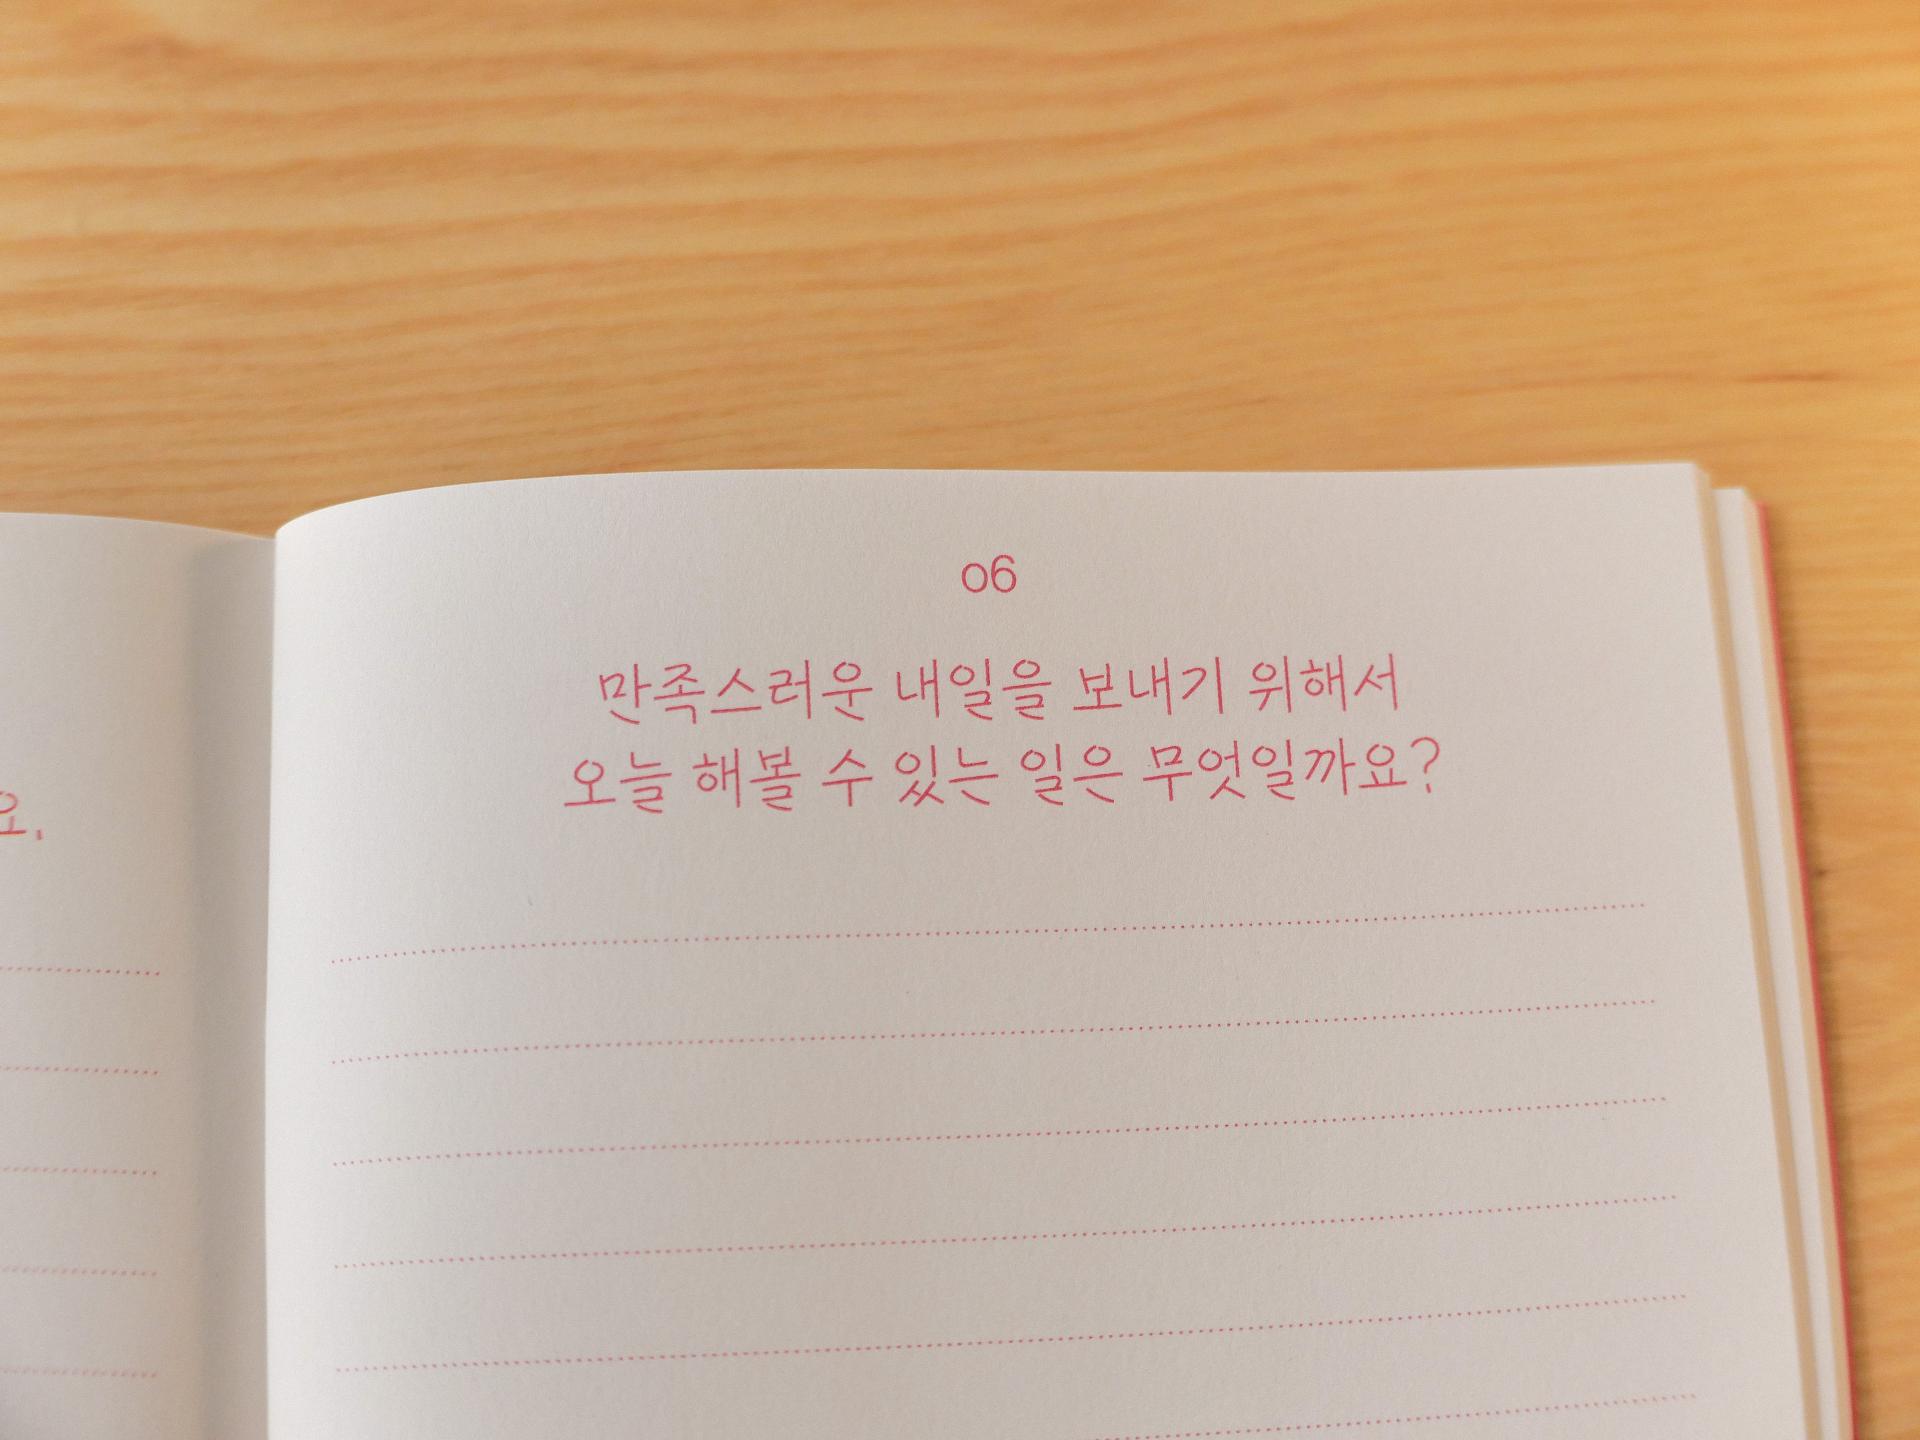 요.
06
만족스러운 내일을 보내기 위해서
오늘 해볼 수 있는 일은 무엇일까요?